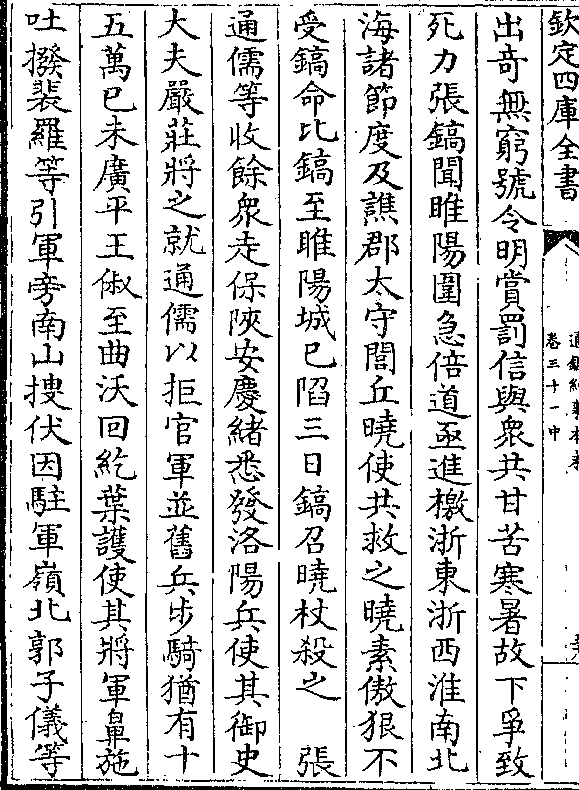 欽定四庫全書
通鑑紀事本末
卷三十一中
出奇無窮號令明賞罰信與衆共甘苦寒暑故下爭致
死力張鎬聞睢陽圍急倍道亟進檄浙東浙西淮南北
海諸節度及譙郡太守閭丘曉使共救之曉素傲狠不
受鎬命比鎬至睢陽城已陷三日鎬召曉杖殺之　張
通儒等收餘衆走保陜安慶緒悉發洛陽兵使其御史
大夫嚴莊將之就通儒以拒官軍並舊兵步騎猶有十
五萬已未廣平王俶至曲沃回紇葉護使其將軍鼻施
吐撥裴羅等引軍旁南山搜伏因駐軍嶺北郭子儀等